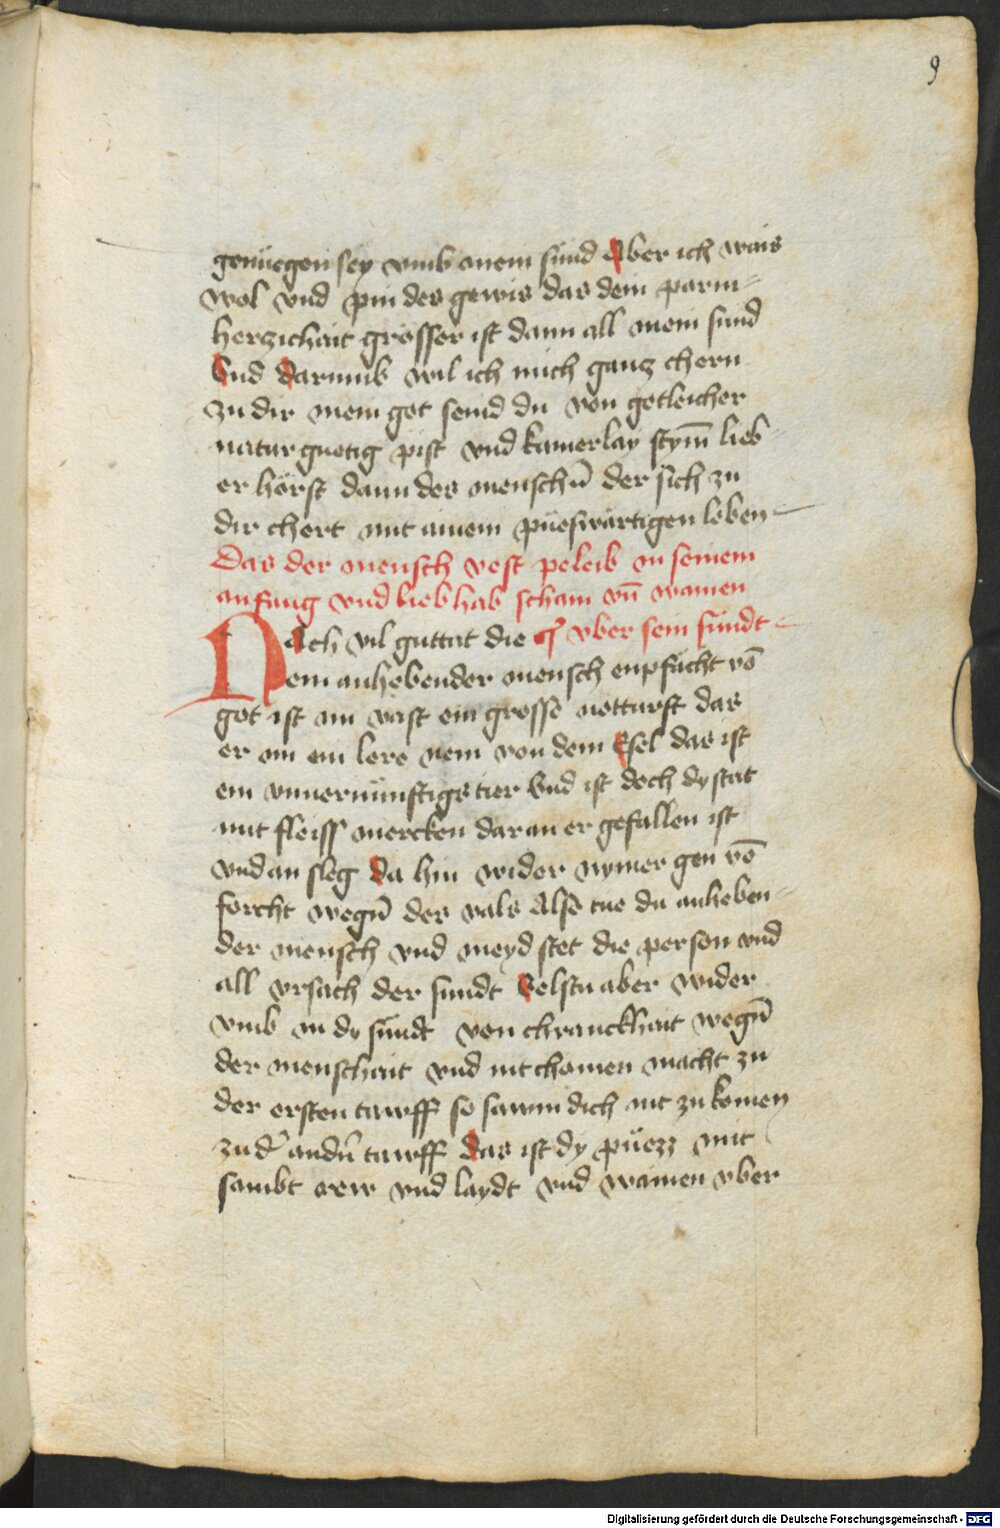 9
genuegen sey vmb mein sünd Aber ich wais
wol vnd pin des gewis das dein parm¬
herzichait grösser ist dann all mein sund
Vnd darumb wil ich mich gancz chern
zu dir mein got seind du von gotleicher
natur guetig pist vnd kainerlay stym̄ lieb¬
er hörst dann des menschn̄ der sich zu
dir chert mit ainem püeswärtigen leben
Das der mensch vest peleib in seinem
anfang vnd lieb hab scham vn̄ wainen
Nach vil guttat die ¶ vber sein sündt
ein anhebender mensch enpfächt vō
got ist im vast ein grosse notturft das
er im ein lere nem von dem Esel das ist
ein vnuernünftigs tier Vnd ist doch dy stat
mit fleiss mercken dar an er gefallen ist
vnd an sleg da hin wider nymer gen vō
forcht wegn̄ des vals Also tue du anheben¬
der mensch vnd meyd stet die person vnd
all vrsach der sundt Velstu aber wider
vmb in dy sündt von chranckhait wegn̄
der menschait vnd nit chomen macht zu
der ersten tawff so sawm dich nit zu komen
zu d' andn̄ tawff das ist dy püezz mit
sambt rew vnd laydt vnd wainen vber
Digitalisierung gefördert durch die Deutsche Forschungsgemeinschaft - DFG